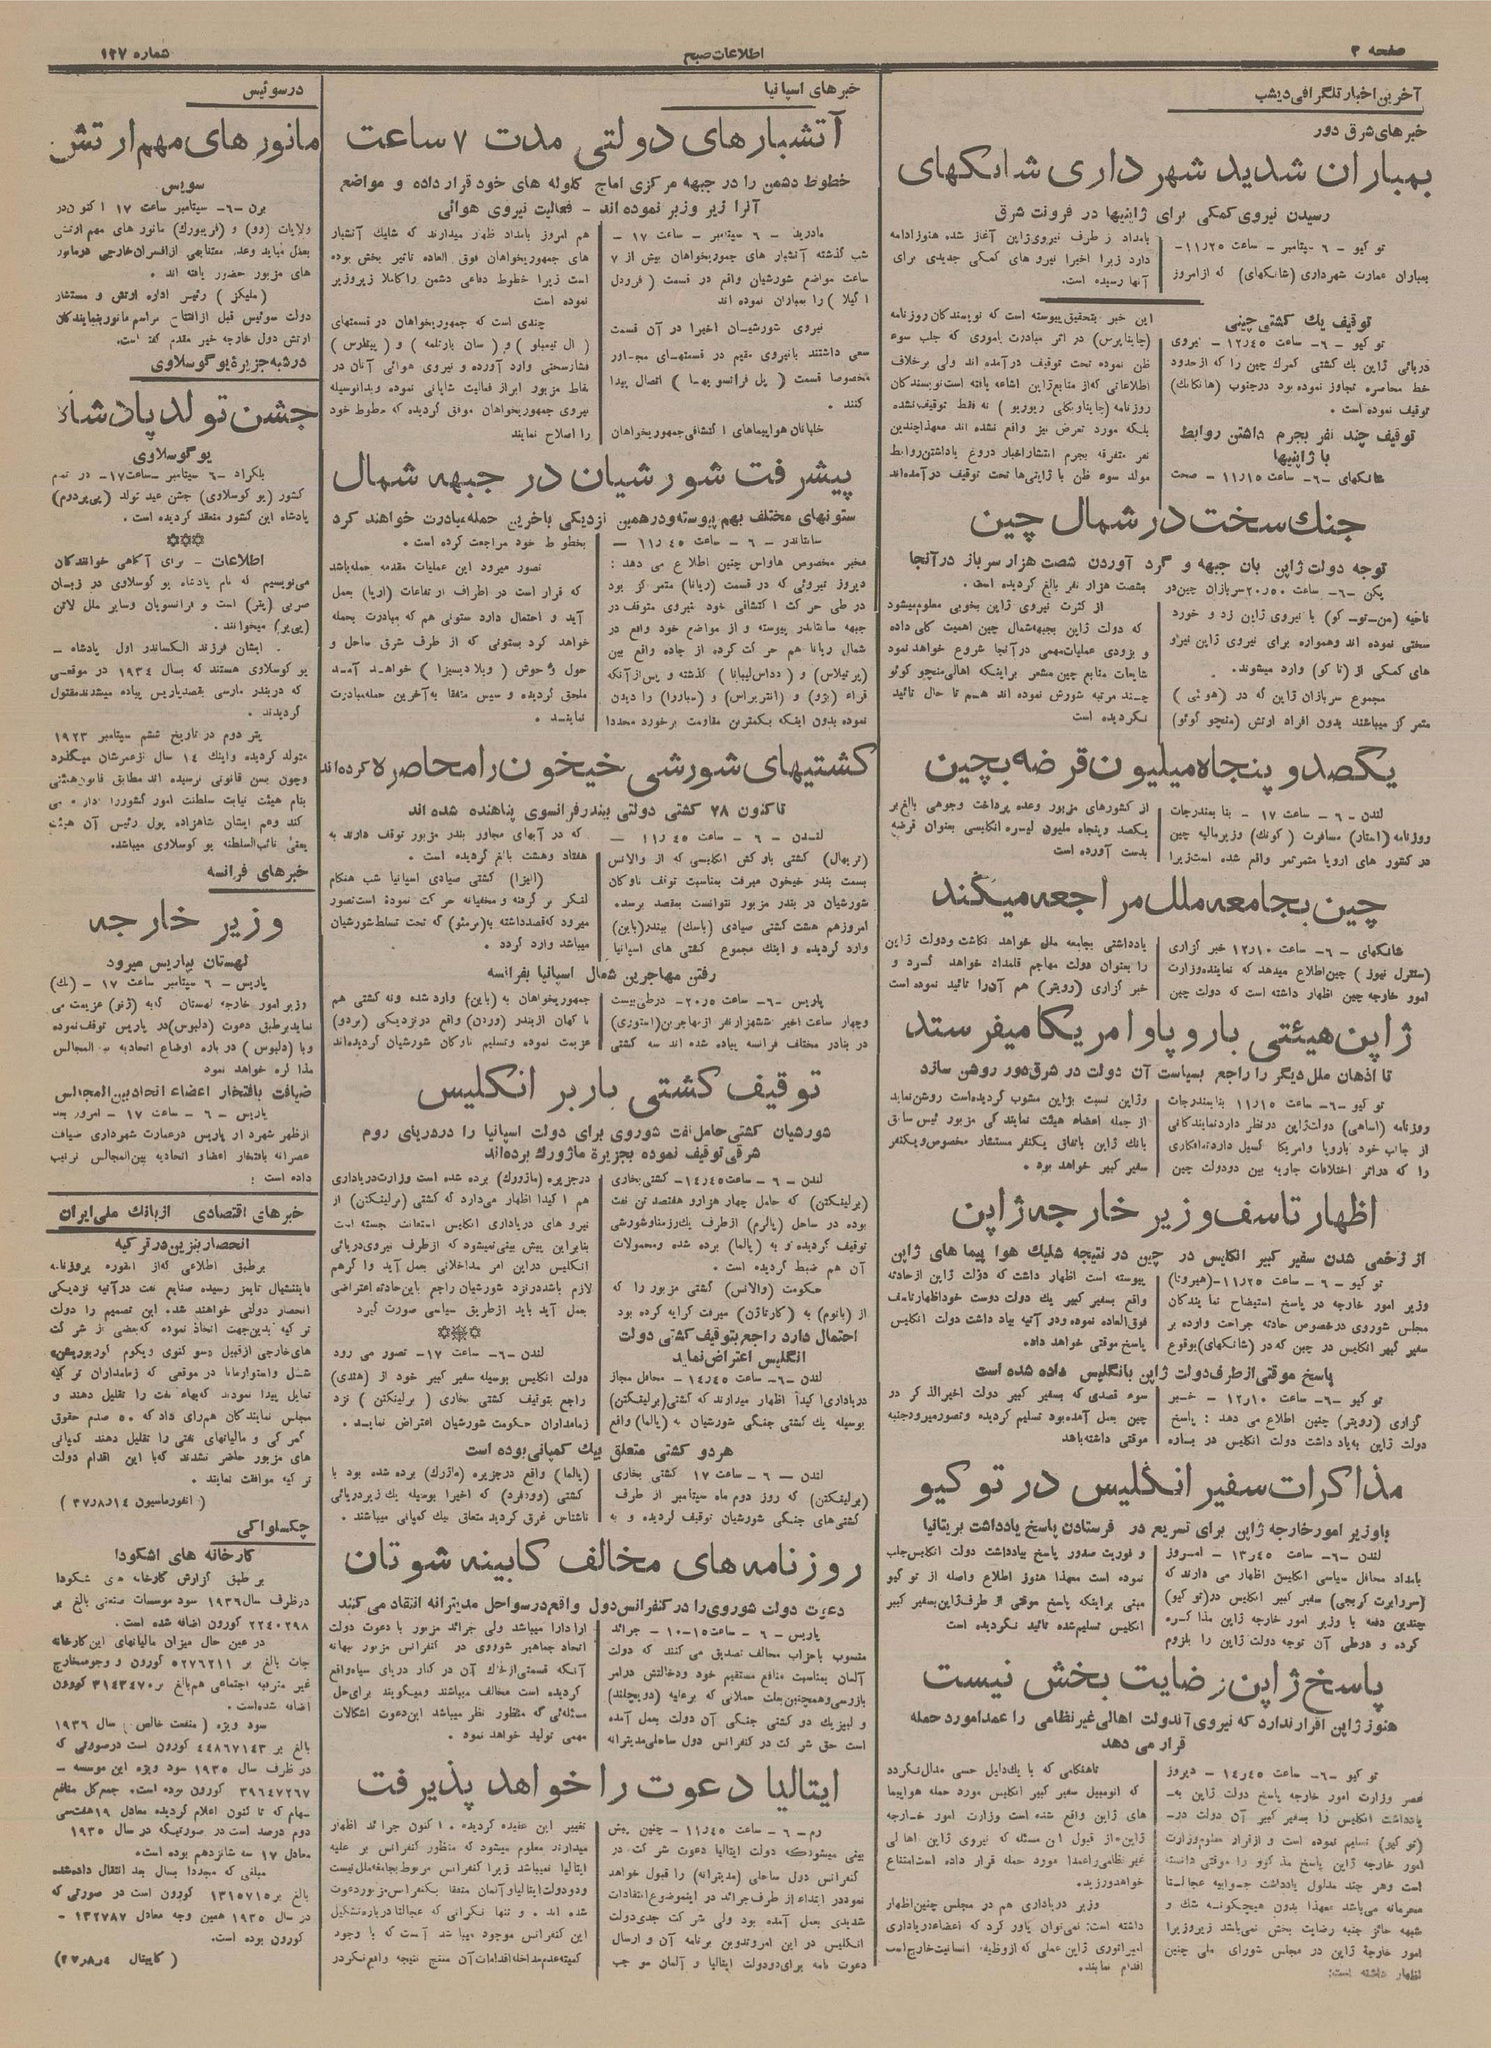 صفحه ۲
اطلاعات صبح
شماره ۱۲۷
آخرین اخبار تلگرافی دیشب
خبرهای شرق دور
بمباران شدید شهرداری شانگهای
رسیدن نیروی کمکی برای ژاپنیها در فرونت شرق
توکیو – ۶ – سپتامبر – ساعت ۱۱٫۲۵ –
بمباران عمارت شهرداری (شانگهای) که از امروز
بامداد از طرف نیروی ژاپن آغاز شده هنوز ادامه
دارد زیرا اخیرا نیروهای کمکی جدیدی برای
آنها رسیده است.
توقیف یك کشتی چینی
توکیو –۶– ساعت ۱۲٫۴۵– نیروی
دریائی ژاپن یك کشتی گمرك چین را که از حدود
خط محاصره تجاوز نموده بود در جنوب (هانكانك)
توقیف نموده است .
توقیف چند نفر بجرم داشتن روابط
با ژاپنیها
شانگهای –۶– ساعت ۱۱٫۱۵ – صحت
این خبر بتحقیق پیوسته است که نویسندگان روزنامه
(چاپناپرس) در اثر مبادرت باموری که جلب سوء
ظن نموده تحت توقیف در آمده اند ولی برخلاف
اطلاعاتی که از منابع ژاپن اشاعه یافته است نویسندگان
روزنامه (چاینا ویکلی ریویو) نه فقط توقیف نشده
بلکه مورد تعرض نیز واقع نشده اند معهذا چندین
نفر متفرقه بجرم انتشار اخبار دروغ یا داشتن روابط
مولد سوء ظن با ژاپنی‌ها تحت توقیف در آمده‌اند
جنك سخت در شمال چین
توجه دولت ژاپن بان جبهه و گرد آوردن شصت هزار سرباز در آنجا
پکن –۶– ساعت ۲۰٫۵۰ سربازان چین در
ناحیه (من–تو–کو) با نیروی ژاپن زد و خورد
سختی نموده اند و همواره برای نیروی ژاپن نیرو
های کمکی از (تاکو) وارد میشوند.
مجموع سربازان ژاپن که در (هوئی)
متمرکز میباشند بدون افراد ارتش (منچوکوئو)
بشصت هزار نفر بالغ گردیده است.
از کثرت نیروی ژاپن بخوبی معلوم میشود
که دولت ژاپن بجبهه شمال چین اهمیت کلی داده
و بزودی عملیات مهمی در آنجا شروع خواهد نمود
شایعات منابع چین مشعر بر اینکه اهالی منچوکوئو
چند مرتبه شورش نموده اند هم تا حال تائید
نگردیده است
یکصد و پنجاه میلیون قرضه بچین
لندن – ۶ – ساعت ۱۷ – بنا بمندرجات
روزنامه (استار) مسافرت (کونك) وزیر مالیه چین
در کشور های اروپا مثمر ثمر واقع شده است زیرا
از کشورهای مزبور وعده پرداخت وجوهی بالغ بر
یکصد و پنجاه ملیون لیره انگلیسی بعنوان قرضه
بدست آورده است
چین بجامعه ملل مراجعه میکند
شانگهای –۶– ساعت ۱۲٫۱۰ خبر گزاری
(سنترل نیوز) چین اطلاع میدهد که نماینده وزارت
امور خارجه چین اظهار داشته است که دولت چین
یادداشتی بجامعه ملل خواهد نگاشت و دولت ژاپن
را بعنوان دولت مهاجم قلمداد خواهد کرد و
خبر گزاری (رویتر) هم آن را تائید نموده است
ژاپن هیئتی باروپا و امریکا میفرستد
تا اذهان ملل دیگر را راجع بسیاست آن دولت در شرق دور روشن سازد
توکیو –۶– ساعت ۱۱٫۱۵ بنا بمندرجات
روزنامه (اساهی) دولت ژاپن در نظر دارد نمایندگانی
از جانب خود باروپا و امریکا گسیل دارد تا افکاری
را که در اثر اختلافات جاریه بین دو دولت چین
و ژاپن نسبت بژاپن مشوب گردیده است روشن نماید
از جمله اعضاء هیئت نمایندگی مزبور ئیس سابق
بانك ژاپن باتفاق یکنفر مستشار مخصوص و یکنفر
سفیر کبیر خواهد بود .
اظهار تاسف وزیر خارجه ژاپن
از زخمی شدن سفیر کبیر انگلیس در چین در نتیجه شلیك هوا پیما های ژاپن
توکیو – ۶ – ساعت ۱۱٫۲۵–(هیروتا)
وزیر امور خارجه در پاسخ استیضاح نمایندگان
مجلس شوروی در خصوص حادثه جراحت وارده بر
سفیر کبیر انگلیس در چین که در (شانگهای) بوقوع
پیوسته است اظهار داشت که دولت ژاپن از حادثه
واقع بسفیر کبیر یك دولت دوست خود اظهار تاسف
فوق‌العاده نموده و در آتیه بیاد داشت دولت انگلیس
پاسخ موقتی خواهد داد.
پاسخ موقتی از طرف دولت ژاپن بانگلیس داده شده است
توکیو –۶– ساعت ۱۲٫۱۰ – خبر
گزاری (رویتر) چنین اطلاع می دهد : پاسخ
دولت ژاپن به یاد داشت دولت انگلیس در باره
سوء قصدی که بسفیر کبیر دولت اخیر الذکر در
چین بعمل آمده بود تسلیم گردیده و تصور میرود جنبه
موقتی داشته باشد
مذاکرات سفیر انگلیس در توکیو
با وزیر امور خارجه ژاپن برای تسریع در فرستادن پاسخ یادداشت بریتانیا
لندن –۶– ساعت ۱۳٫۴۵ – امروز
بامداد محافل سیاسی انگلیس اظهار می دارند که
(سر رابرت کریجی) سفیر کبیر انگلیس در (توکیو)
چندین دفعه با وزیر امور خارجه ژاپن مذاکره
کرده و در طی آن توجه دولت ژاپن را بلزوم
و فوریت صدور پاسخ بیادداشت دولت انگلیس جلب
نموده است معهذا هنوز اطلاع واصله از توکیو
مبنی بر اینکه پاسخ موقتی از طرف ژاپن بسفیر کبیر
انگلیس تسلیم شده تائید نگردیده است
پاسخ ژاپن رضایت بخش نیست
هنوز ژاپن اقرار ندارد که نیروی آندولت اهالی غیر نظامی را عمدا مورد حمله
قرار می دهد
توکیو –۶– ساعت ۱۴٫۴۵ – دیروز
عصر وزارت امور خارجه پاسخ دولت ژاپن به
یادداشت انگلیس را بسفیر کبیر آن دولت در
(توکیو) تسلیم نموده است و از قرار معلوم وزارت
امور خارجه ژاپن پاسخ مذکور را موقتی دانسته
است و هر چند مدلول یادداشت جوابیه عجالتا
محرمانه می‌باشد معهذا بدون هیچگونه شك و
شبهه حائز جنبه رضایت بخش نمی‌باشد زیرا وزیر
امور خارجه ژاپن در مجلس شورای ملی چنین
اظهار داشته است:
تا هنگامی که با یك دلیل حسی مدلل نگردد
که اتومبیل سفیر کبیر انگلیس مورد حمله هواپیما
های ژاپن واقع شده است وزارت امور خارجه
ژاپن از قبول این مسئله که نیروی ژاپن اهالی
غیر نظامی را عمدا مورد حمله قرار داده است امتناع
خواهد ورزید.
وزیر دریاداری هم در مجلس چنین اظهار
داشته است: نمی‌توان باور کرد که اعضاء دریاداری
امپراتوری ژاپن عملی که از وظیفه انسانیت خارج است
اقدام نمایند.
خبرهای اسپانیا
آتشبارهای دولتی مدت ۷ ساعت
خطوط دشمن را در جبهه مرکزی اماج گلوله های خود قرار داده و مواضع
آنرا زیر و زبر نموده اند – فعالیت نیروی هوائی
مادرید – ۶ سپتامبر – ساعت ۱۷ –
شب گذشته آتشبار های جمهوریخواهان بیش از ۷
ساعت مواضع شورشیان واقع در قسمت (فرودل
اگیلا) را بمباران نموده اند
نیروی شورشیان اخیرا در آن قسمت
سعی داشتند با نیروی مقیم در قسمتهای مجاور
مخصوصا قسمت (پل فرانسویها) اتصال پیدا
کنند .
خلبانان هواپیماهای اکتشافی جمهوریخواهان
هم امروز بامداد اظهار میدارند که شلیك آتشبار
های جمهوریخواهان فوق العاده تاثیر بخش بوده
است زیرا خطوط دفاعی دشمن را کاملا زیر و زبر
نموده است
چندی است که جمهوریخواهان در قسمتهای
(ال تیمبلو) و (سان بارتلمه) و (پینلرس)
فشار سختی وارد آورده و نیروی هوائی آنان در
نقاط مزبور ابراز فعالیت شایانی نموده و بدانوسیله
نیروی جمهوریخواهان موفق گردیده که خطوط خود
را اصلاح نمایند
پیشرفت شورشیان در جبهه شمال
ستونهای مختلف بهم پیوسته و در همین نزدیکی باخرین حمله مبادرت خواهند کرد
سانتاندر – ۶ – ساعت ۱۱٫۴۵ –
مخبر مخصوص هاواس چنین اطلاع می دهد :
دیروز نیروئی که در قسمت (ریانا) متمرکز بود
در طی حرکت اکتشافی خود بنیروی متوقف در
جبهه سانتاندر پیوسته و از مواضع خود واقع در
شمال ریانا هم حرکت کرده از جاده واقع بین
(پرتیلاس) و (دداس لیبانا) گذشته و پس از آنکه
قراء (بژو) و (انتربراس) و (باروا) را دیدن
نموده بدون اینکه بکمترین مقاومت برخورد مجددا
بخطوط خود مراجعت کرده است .
تصور میرود این عملیات مقدمه حمله باشد
که قرار است در اطراف ارتفاعات (اریا) بعمل
آید و احتمال دارد ستونی هم که مبادرت بحمله
خواهد کرد بستونی که از طرف شرق ساحل و
حول و حوش (ویلا دیسیزا) خواهد آمد
ملحق گردیده و سپس متفقا به آخرین حمله مبادرت
نمایند .
کشتیهای شورشی خیخون را محاصره کرده‌اند
تا کنون ۷۸ کشتی دولتی ببندر فرانسوی پناهنده شده اند
لندن – ۶ – ساعت ۱۱٫۴۵ –
(تریهال) کشتی بارکش انگلیسی که از والانس
بسمت بندر خیخون میرفت بمناسبت توقف ناوگان
شورشیان در بندر مزبور نتوانست بمقصد برسد.
امروز هم هشت کشتی صیادی (باسك) ببندر (باین)
وارد گردیده و اینك مجموع کشتی های اسپانیا
که در آبهای مجاور بندر مزبور توقف دارند به
هفتاد و هشت بالغ گردیده است .
(الیزا) کشتی صیادی اسپانیا شب هنگام
لنگر برگرفته و مخفیانه حرکت نموده است تصور
میرود که قصد داشته به (برمئو) که تحت تسلط شورشیان
میباشد وارد گردد .
رفتن مهاجرین شمال اسپانیا بفرانسه
پاریس –۶– ساعت ۲۰٫۵– در طی بیست
و چهار ساعت اخیر ششهزار نفر از مهاجرین (استوری)
در بنادر مختلف فرانسه پیاده شده اند سه کشتی
جمهوریخواهان به (باین) وارد شده و نه کشتی هم
ناگهان از بندر (وردن) واقع در نزدیکی (بردو)
عزیمت نموده و تسلیم ناوگان شورشیان گردیده‌اند
توقیف کشتی باربر انگلیس
شورشیان کشتی حامل نفت شوروی برای دولت اسپانیا را در دریای روم
شرقی توقیف نموده بجزیره ماژورك برده‌اند
لندن –۶– ساعت ۱۴٫۴۵– کشتی بخاری
(برلینگتن) که حامل چهار هزار و هفتصد تن نفت
بوده در ساحل (پالرم) از طرف یك رزمناو شورشی
توقیف گردیده و به (پالما) برده شده و محمولات
آن هم ضبط گردیده است .
حکومت (والانس) کشتی مزبور را که
از (باتوم) به (کارتاژن) میرفت کرایه کرده بود
احتمال دارد راجع بتوقیف کشتی دولت
انگلیس اعتراض نماید
لندن –۶– ساعت ۱۴٫۴۵ – محافل مجاز
دریاداری اکیدا اظهار میدارند که کشتی (برلینگتن)
بوسیله یك کشتی جنگی شورشیان به (پالما) واقع
در جزیره (ماژورك) برده شده است وزارت دریاداری
هم اکیدا اظهار می‌دارد که کشتی (برلینگتن) از
نیروهای دریاداری انگلیس استعانت جسته است
بنابراین پیش بینی نمیشود که از طرف نیروی دریائی
انگلیس در این امر مداخلاتی بعمل آید و اگر هم
لازم باشد در نزد شورشیان راجع باین حادثه اعتراضی
بعمل آید باید از طریق سیاسی صورت گیرد
لندن –۶– ساعت ۱۷– تصور می رود
دولت انگلیس بوسیله سفیر کبیر خود از (هندی)
راجع بتوقیف کشتی بخاری (برلینگتن) نزد
زمامداران حکومت شورشیان اعتراض نماید .
هر دو کشتی متعلق بیك کمپانی بوده است
لندن – ۶ – ساعت ۱۷ کشتی بخاری
(برلینگتن) که روز دوم ماه سپتامبر از طرف
کشتی‌های جنگی شورشیان توقیف گردیده و به
(پالما) واقع در جزیره (ماژرك) برده شده بود با
کشتی (وودفرد) که اخیرا بوسیله یك زیر دریائی
ناشناس غرق گردید متعلق بیك کمپانی میباشند .
روزنامه های مخالف کابینه شوتان
دعوت دولت شوروی را در کنفرانس دول واقع در سواحل مدیترانه انتقاد می کنند
پاریس – ۶ – ساعت ۱۵–۱۰ – جرائد
منسوب باحزاب مخالف تصدیق می کنند که دولت
آلمان بمناسبت منافع مستقیم خود و دخالتش در امر
بازرسی و همچنین بعلت حملاتی که بر علیه (دویچلند)
و لیپزیك دو کشتی جنگی آن دولت بعمل آمده
است حق شرکت در کنفرانس دول ساحلی مدیترانه
را دارا میباشد ولی جرائد مزبور با دعوت دولت
اتحاد جماهیر شوروی در کنفرانس مزبور ببهانه
آنکه قسمتی از خاك آن در کنار دریای سیاه واقع
گردیده است مخالف میباشند و میگویند برای حل
مسئله‌ی که منظور نظر میباشد این دعوت اشکالات
مهمی تولید خواهد نمود .
ایتالیا دعوت را خواهد پذیرفت
رم – ۶ – ساعت ۱۱٫۴۵ – چنین پیش
بینی میشود که دولت ایتالیا دعوت شرکت در
کنفرانس دول ساحلی (مدیترانه) را قبول خواهد
نمود در ابتداء از طرف جرائد در اینموضوع انتقادات
شدیدی بعمل آمده بود ولی شرکت جدی دولت
انگلیس در این امر و تدوین برنامه آن و ارسال
دعوت نامه برای دو دولت ایتالیا و آلمان موجب
تغییر این عقیده گردیده . اکنون جرائد اظهار
میدارند معلوم میشود که منظور کنفرانس بر علیه
ایتالیا نمیباشد زیرا کنفرانس مربوط بجامعه ملل نیست
و دو دولت ایتالیا و آلمان متفقا بکنفرانس مزبور دعوت
شده اند . و تنها نگرانی که عجالتا درباره تشکیل
این کنفرانس موجود میباشد آنست که با وجود
کمیته عدم مداخله اقدامات آن منتج نتیجه واقع نگردد
در سوئیس
مانورهای مهم ارتش
سویس
برن –۶– سپتامبر ساعت ۱۷ اکنون در
ولایات (وو) و (فریبورك) مانور های مهم ارتش
بعمل میاید وعده معتنابهی از افسران خارجی در مانور
های مزبور حضور یافته اند .
(ملیکر) رئیس اداره ارتش و مستشار
دولت سوئیس قبل از افتتاح مراسم مانور بنمایندگان
ارتش دول خارجه خیر مقدم گفته است.
در شبه جزیره یوگوسلاوی
جشن تولد پادشاه
یوگوسلاوی
بلگراد –۶ سپتامبر –ساعت ۱۷– در تمام
کشور (یوگوسلاوی) جشن عید تولد (پی‌یر دوم)
پادشاه این کشور منعقد گردیده است .
اطلاعات – برای آگاهی خوانندگان
می‌نویسیم که نام پادشاه یوگوسلاوی در زبان
صربی (پتر) است و فرانسویان و سایر ملل لاتن
(پی‌یر) میخوانند .
ایشان فرزند الکساندر اول پادشاه
یوگوسلاوی هستند که بسال ۱۹۳۴ در موقعی
که در بندر مارسی بقصد پاریس پیاده میشدند مقتول
گردیدند .
پتر دوم در تاریخ ششم سپتامبر ۱۹۲۳
متولد گردیده و اینك ۱۴ سال از عمرشان میگذرد
و چون بسن قانونی نرسیده اند مطابق قانون هیئتی
بنام هیئت نیابت سلطنت امور کشور را اداره می
کند و هم ایشان شاهزاده پول رئیس آن هیئت
یعنی نائب السلطنه یوگوسلاوی میباشد.
خبرهای فرانسه
وزیر خارجه
لهستان بپاریس میرود
پاریس – ۶ سپتامبر ساعت ۱۷ – (بك)
وزیر امور خارجه لهستان که به (ژنو) عزیمت می
نماید بر طبق دعوت (دلبوس) در پاریس توقف نموده
و با (دلبوس) در باره اوضاع اتحادیه بین المجالس
مذاکره خواهد نمود
ضیافت بافتخار اعضاء اتحاد بین المجالس
پاریس – ۶ – ساعت ۱۷ – امروز بعد
از ظهر شهردار پاریس در عمارت شهرداری ضیافت
عصرانه بافتخار اعضاء اتحادیه بین المجالس ترتیب
داده است :
خبرهای اقتصادی از بانك ملی ایران
انحصار بنزین در ترکیه
بر طبق اطلاعی که از انقوره بروزنامه
فایننشیال تایمز رسیده صنایع نفت در آتیه نزدیکی
انحصار دولتی خواهند شده این تصمیم را دولت
ترکیه بدین جهت اتخاذ نموده که بعضی از شرکت
های خارجی از قبیل سوکنوی ویکوم کورپوریشن
شل و استوارمانا در موقعی که زمامداران ترکیه
تمایل پیدا نمودند که بهاء نفت را تقلیل دهند و
مجلس نمایندگان هم رای داد که ۵۰ صدم حقوق
گمرکی و مالیاتهای نفتی را تقلیل دهند کمپانی
های مزبور حاضر نشدند که با این اقدام دولت
ترکیه موافقت نمایند .
(انفورماسیون ۳۷٫۸٫۱۴)
چکسلواکی
کارخانه های اشکودا
بر طبق گزارش کارخانه های شکودا
در ظرف سال ۱۹۳۶ سود موسسات صنعتی بالغ بر
۲۲۴۰۲۹۸ کورون اضافه شده است .
در عین حال میزان مالیاتهای این کارخانه
جات بالغ بر ۵۲۷۶۲۱۱ کورون و وجوه مخارج
غیر مترقبه اجتماعی هم بالغ بر ۳۱۴۳۴۷۰ کورون
اضافه شده است.
سود ویژه (منفعت خالص) سال ۱۹۳۶
بالغ بر ۴۴۸۶۷۱۴۳ کورون است در صورتی که
در ظرف سال ۱۹۳۵ سود ویژه این موسسه –
۳۹۶۴۷۲۶۷ کورون بوده است. جمع کل منافع
سهام که تا کنون اعلام گردیده معادل ۱۹ هفت سی
دوم درصد است در صورتیکه در سال ۱۹۳۵
معادل ۱۷ سه شانزدهم بوده است.
مبلغی که مجددا بسال بعد انتقال داده شده
بالغ بر ۱۳۱۵۷۱۵ کورون است در صورتی که
در سال ۱۹۳۵ همین وجه معادل ۱۳۲۷۸۷ –
کورون بوده است.
(کاپیتال ۳۷٫۸٫۴)